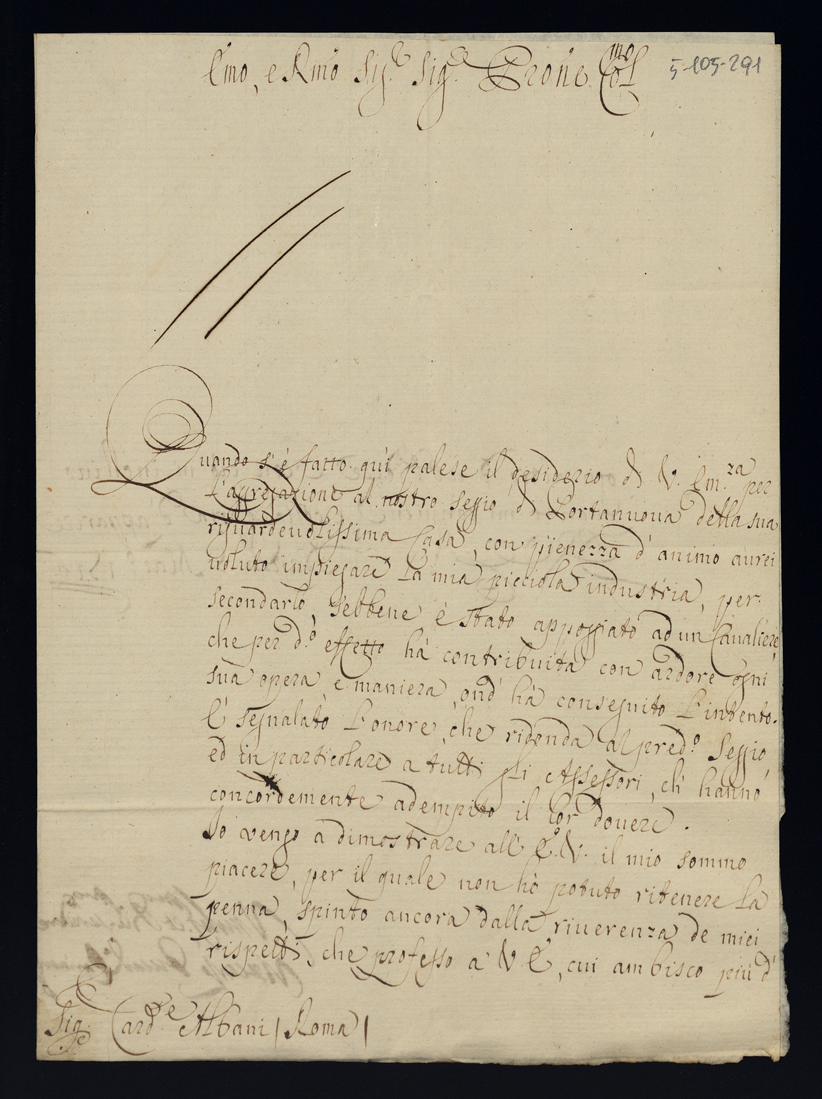 Emo, e Rmo Sig.r Sig.r Prone Col.mo
5-105-291
Quando s'è fatto quì palese il desiderio di V. Em.za per
l'aggregazione al nostro seggio di Portanuova della sua
riguardevolissima Casa, con pienezza d'animo aurei
uoluto impiegare la mia picciola industria, per
secondarlo, sebbene è stato appoggiato ad un Cavaliere,
che per d.o effetto hà contribuita con ardore ogni
sua opera, e maniera, ond' hà conseguito l'intento.
E' segnalato l'onore, che ridonda al pred.o Seggio,
ed in particolare a tutti gli Assessori, ch' hanno
concordemente adempito il lor douere.
Io vengo a dimostrare all' E. V. il mio sommo
piacere, per il quale non hò potuto ritenere la
penna, spinto ancora dalla riuerenza de miei
rispetti, che professo a V. E., cui ambisco più d'
Sig.r Card.le Albani (Roma)